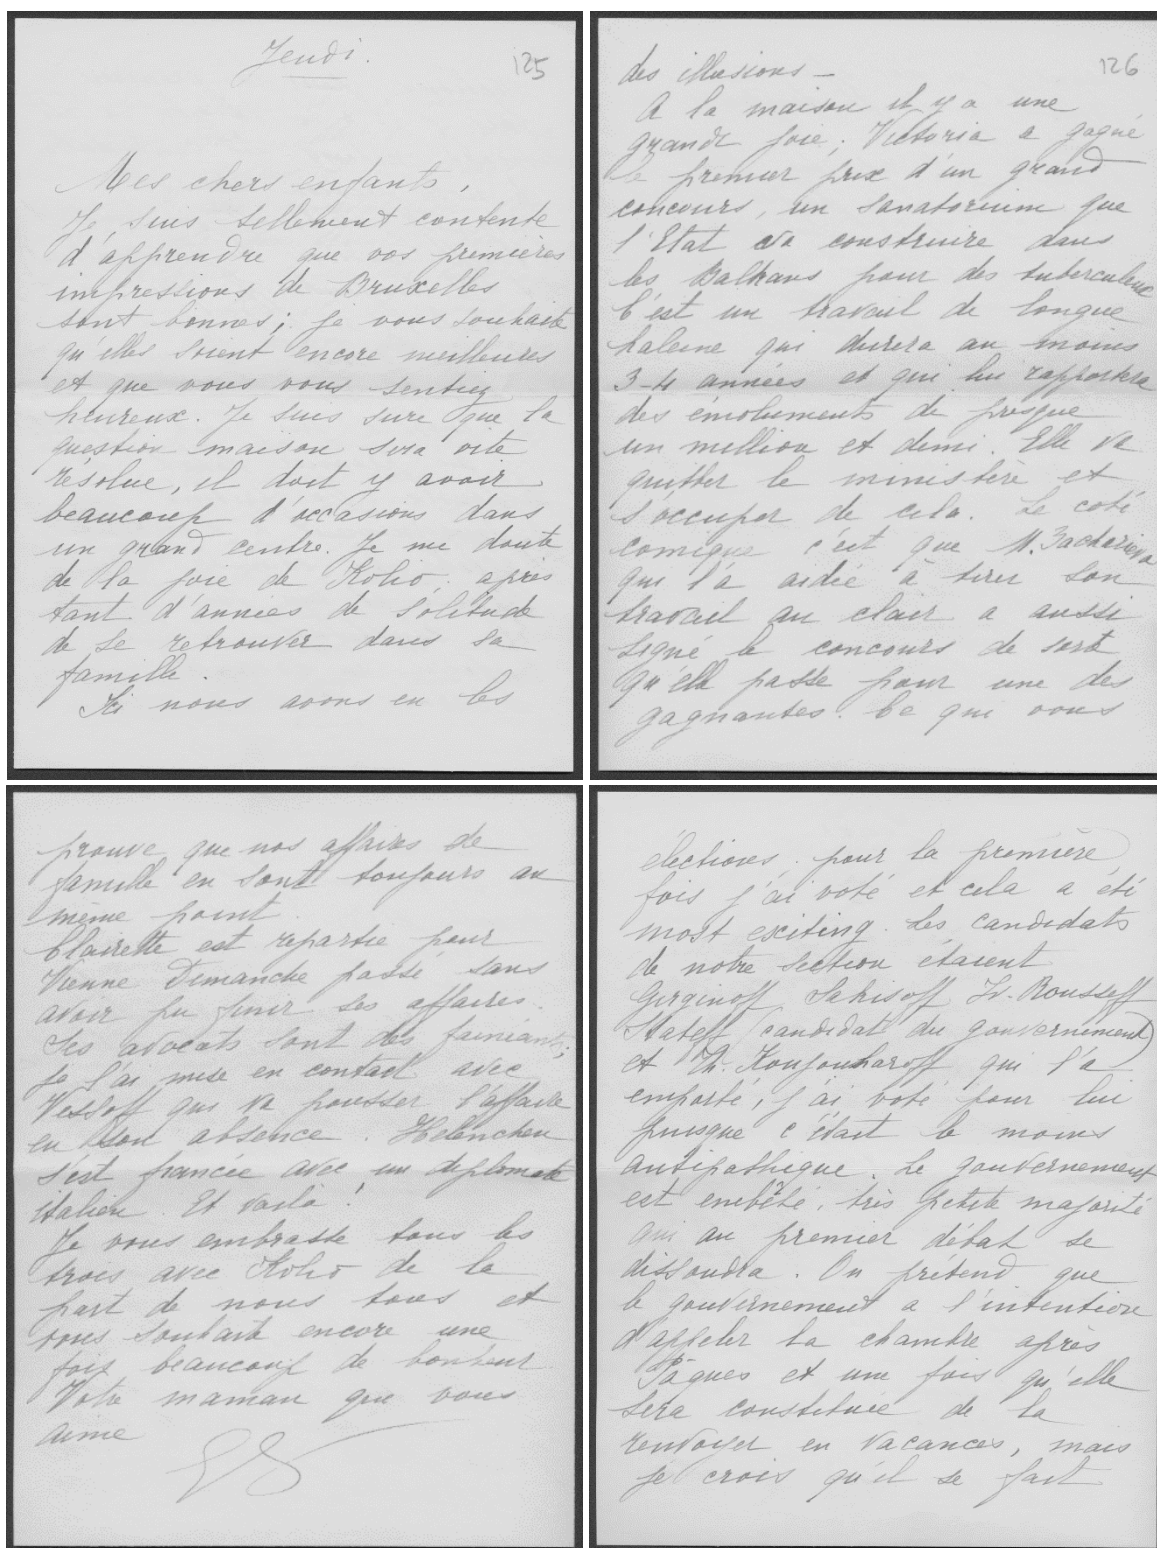 Jeudi.
125
Mes chers enfants,
Je suis tellement contente
d'apprendre que vos premières
impressions de Bruxelles
sont bonnes; je vous souhaite
qu'elles soient encore meilleures
et que vous vous sentiez
heureux. Je suis sure que la
question maison sera vite
résolue, il doit y avoir
beaucoup d'occasions dans
un grand centre. Je me doute
de la joie de Kolio après
tant d'années de solitude
de se retrouver dans sa
famille.
Ici nous avons eu les
126
des illusions –
A la maison il y a une
grande joie; Victoria a gagné
le premier prix d'un grand
concours, un sanatorium que
l'Etat va construire dans
les Balkans pour des tuberculeux
C'est un travail de longue
haleine qui durera au moins
3-4 années et qui lui rapportera
des émoluments de presque
un million et demi. Elle va
quitter le ministère et
s'occuper de cela. Le coté
comique c'est que M. Zacharieva
qui l'a aidée à tirer son
travail au clair a aussi
signé le concours de sorte
qu'elle passe pour une des
gagnantes. Ce qui vous
prouve que nos affaires de
famille en sont toujours au
même point.
Clairette est repartie pour
Vienne Dimanche passé sans
avoir pu finir ses affaires.
Ses avocats sont des fainéants;
je l'ai mise en contact avec
Vessoff qui va pousser l'affaire
en son absence. Helenchen
s'est fiancée avec un diplomate
italien. Et voilà!
Je vous embrasse tous les
trois avec Kolio de la
part de nous tous et
vous souhaite encore une
fois beaucoup de bonheur.
Votre maman qui vous
aime
élections, pour la première
fois j'ai voté et cela a été
most exciting. Les candidats
de notre section étaient
Girginoff, Sakisoff, Iv. Rousseff
Stateff (candidat du gouvernement)
et Th. Koujouharoff qui l'a
emporté, j'ai voté pour lui
puisque c'était le moins
antipathique. Le gouvernement
est embêté, très petite majorité
qui au premier débat se
dissoudra. On prétend que
le gouvernement a l'intention
d'appeler la chambre après
Pâques et une fois qu'elle
sera constituée de la
renvoyer en vacances, mais
je crois qu'il se fait